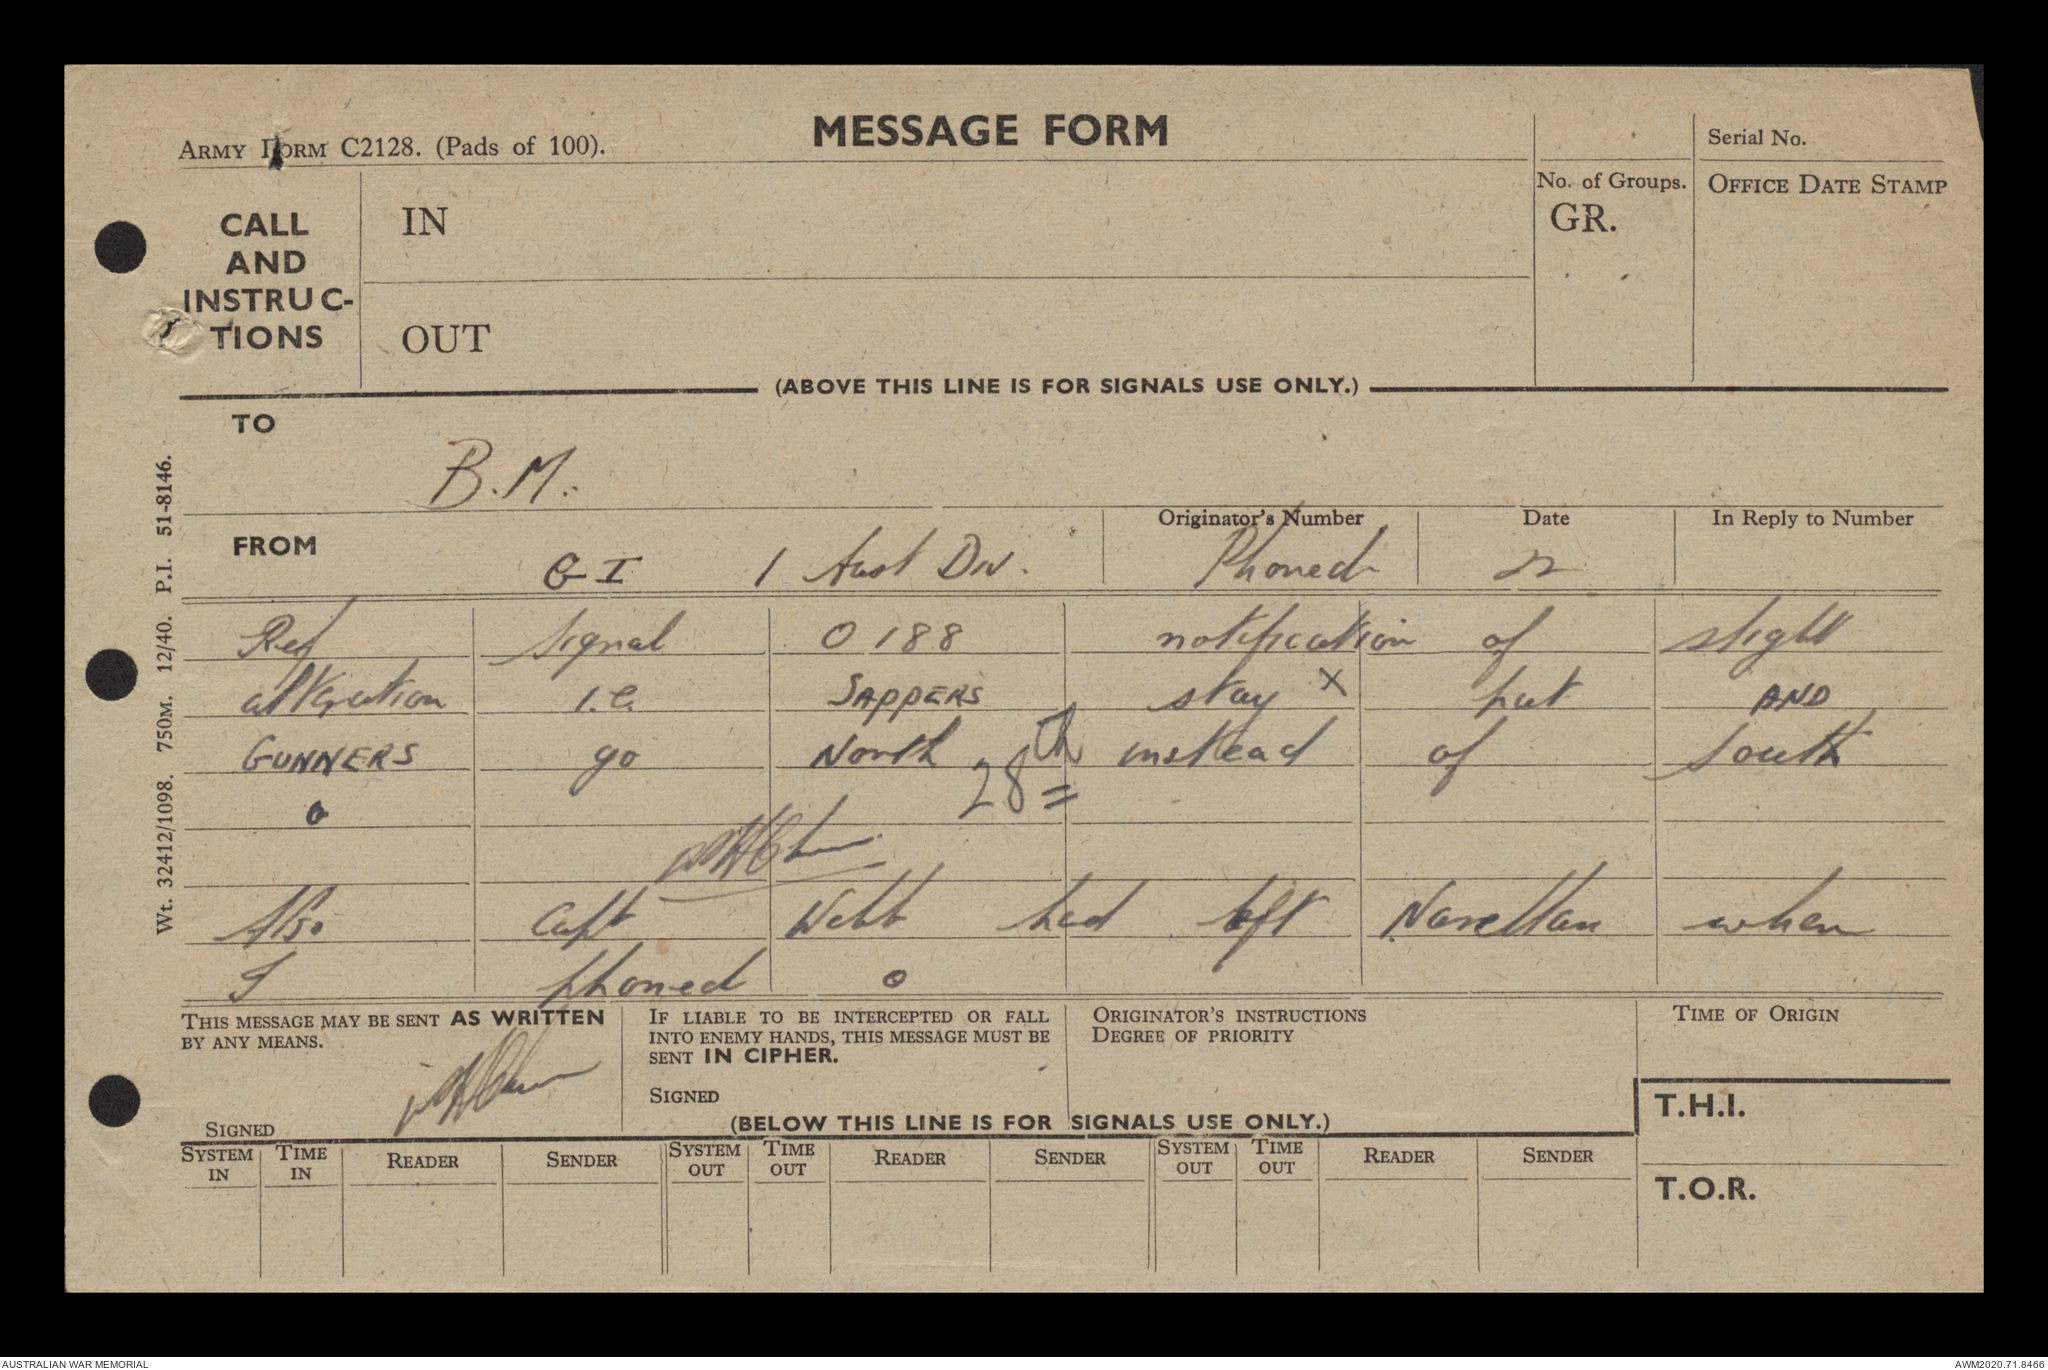 ARMY FORM C2128. (Pads of 100).
MESSAGE FORM
Serial No.
CALL AND INSTRUC-TIONS
IN
OUT
No. of Groups.
GR.
OFFICE DATE STAMP
(ABOVE THIS LINE IS FOR SIGNALS USE ONLY.)
TO
B.M.
FROM
G I 1 Aust Div.
Originator's Number
Phoned
Date
22
In Reply to Number
Ref signal O 188 notification of slight
alteration i.e. SAPPERS stay X put AND
GUNNERS go North instead of South
o
28th
Also Capt Webb had left Narellan when
I phoned o
THIS MESSAGE MAY BE SENT AS WRITTEN
BY ANY MEANS.
SIGNED
IF LIABLE TO BE INTERCEPTED OR FALL
INTO ENEMY HANDS, THIS MESSAGE MUST BE
SENT IN CIPHER.
SIGNED
ORIGINATOR'S INSTRUCTIONS
DEGREE OF PRIORITY
TIME OF ORIGIN
T.H.I.
T.O.R.
(BELOW THIS LINE IS FOR SIGNALS USE ONLY.)
SYSTEM IN TIME IN READER SENDER SYSTEM OUT TIME OUT READER SENDER SYSTEM OUT TIME OUT READER SENDER
Wt. 32412/1098. 750M. 12/40. P.I. 51-8146.
AUSTRALIAN WAR MEMORIAL
AWM2020.71.8466